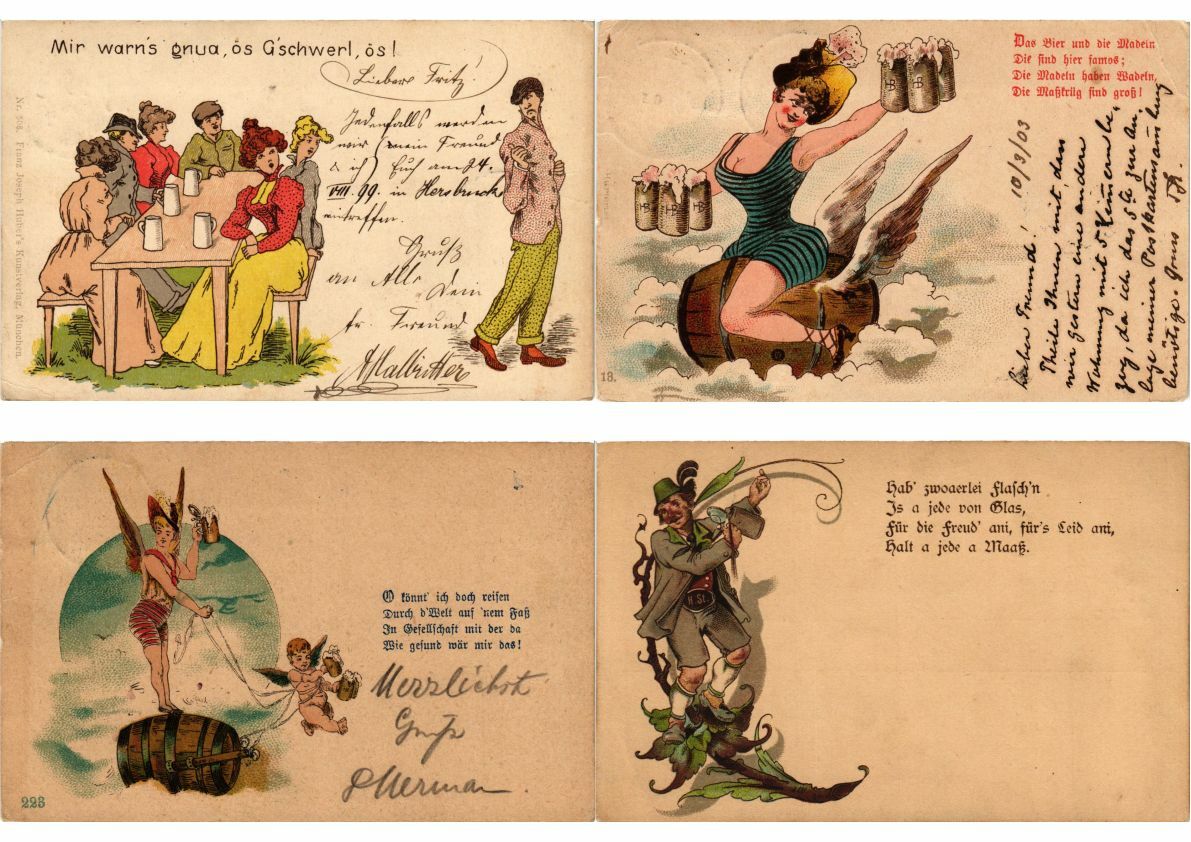 Mir warn's gnua, ös G'schwerl, ös!
Lieber Fritz!
Jedenfalls werden
wir mein Freund
& ich Euch am 24.
VIII. 99. in Hersbruck
eintreffen.
Gruß
an Alle Dein
fr. Freund
AHalbritter
Nr. 508. Franz Joseph Huber's Kunstverlag, München.
Das Bier und die Madeln
Die sind hier famos;
Die Madeln haben Wadeln,
Die Maßkrüg sind groß!
HB
HB
HB
HB
HB
10/3/03
Lieber Freund!
Theile Ihnen mit, dass
wir gestern eine andere
Wohnung mit 5 Zimmern be-
zog, da ich das 5te zur An-
lage meiner Postkartensammlung
benötige Gruss
13.
O könnt' ich doch reisen
Durch d'Welt auf 'nem Faß
In Gesellschaft mit der da
Wie gesund wär mir das!
Herzlichst
Gruß
223
Hab' zwoaerlei Flasch'n
Is a jede von Glas,
Für die Freud' ani, für's Leid ani,
Halt a jede a Maaß.
H. St.